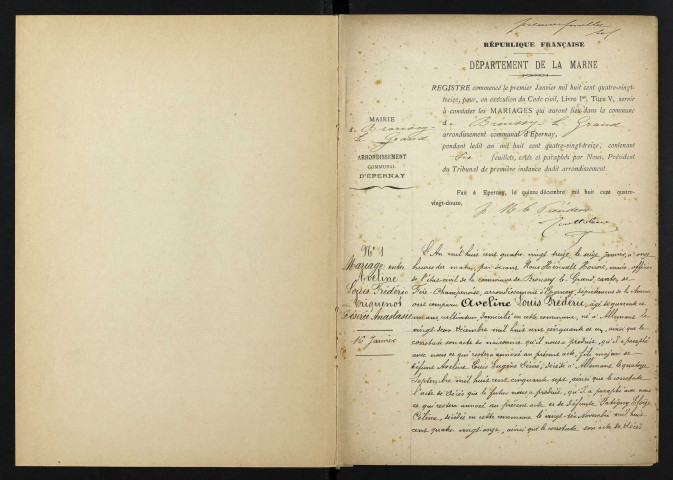 premier feuillet
RÉPUBLIQUE FRANÇAISE
DÉPARTEMENT DE LA MARNE
REGISTRE commencé le premier Janvier mil huit cent quatre-vingt-
treize, pour, en exécution du Code civil, Livre Ier, Titre V, servir
à constater les MARIAGES qui auront lieu dans la commune
de Broussy le Grand
arrondissement communal d'Epernay,
pendant ledit an mil huit cent quatre-vingt-treize, contenant
Six feuillets, cotés et paraphés par Nous, Président
du Tribunal de première instance dudit arrondissement.
Fait à Epernay, le quinze décembre mil huit cent quatre-
vingt-douze.
MAIRIE
de Broussy
le Grand
ARRONDISSEMENT
COMMUNAL
D'EPERNAY
p. M. le Président
N° 1
Mariage entre
Aveline
Louis Frédéric
et
Triquenot
Désirée Anastasie
16 Janvier
L'An mil huit cent quatre vingt treize, le seize Janvier, à onze
heures du matin, par devant Nous maire, officier
de l'état civil de la commune de Broussy le Grand, canton de
Fère Champenoise, arrondissement d'Epernay, département de la Marne
sont comparus Aveline Louis Frédéric, âgé de quarante et
un ans, cultivateur, domicilié en cette commune, né à Allemant le
vingt deux décembre mil huit cent cinquante et un, ainsi que le
constate son acte de naissance qu'il nous a produit, qu'il a paraphé
avec nous et qui restera annexé au présent acte, fils majeur de
défunt Aveline Louis Eugène Aimé, décédé à Allemant le quatorze
Septembre mil huit cent cinquante sept, ainsi que le constate
l'acte de décès que le futur nous a produit, qu'il a paraphé avec nous
et qui restera annexé au présent acte et de défunte
Céline, décédée en cette commune le vingt six Novembre mil huit
cent quatre vingt onze, ainsi que le constate son acte de décès